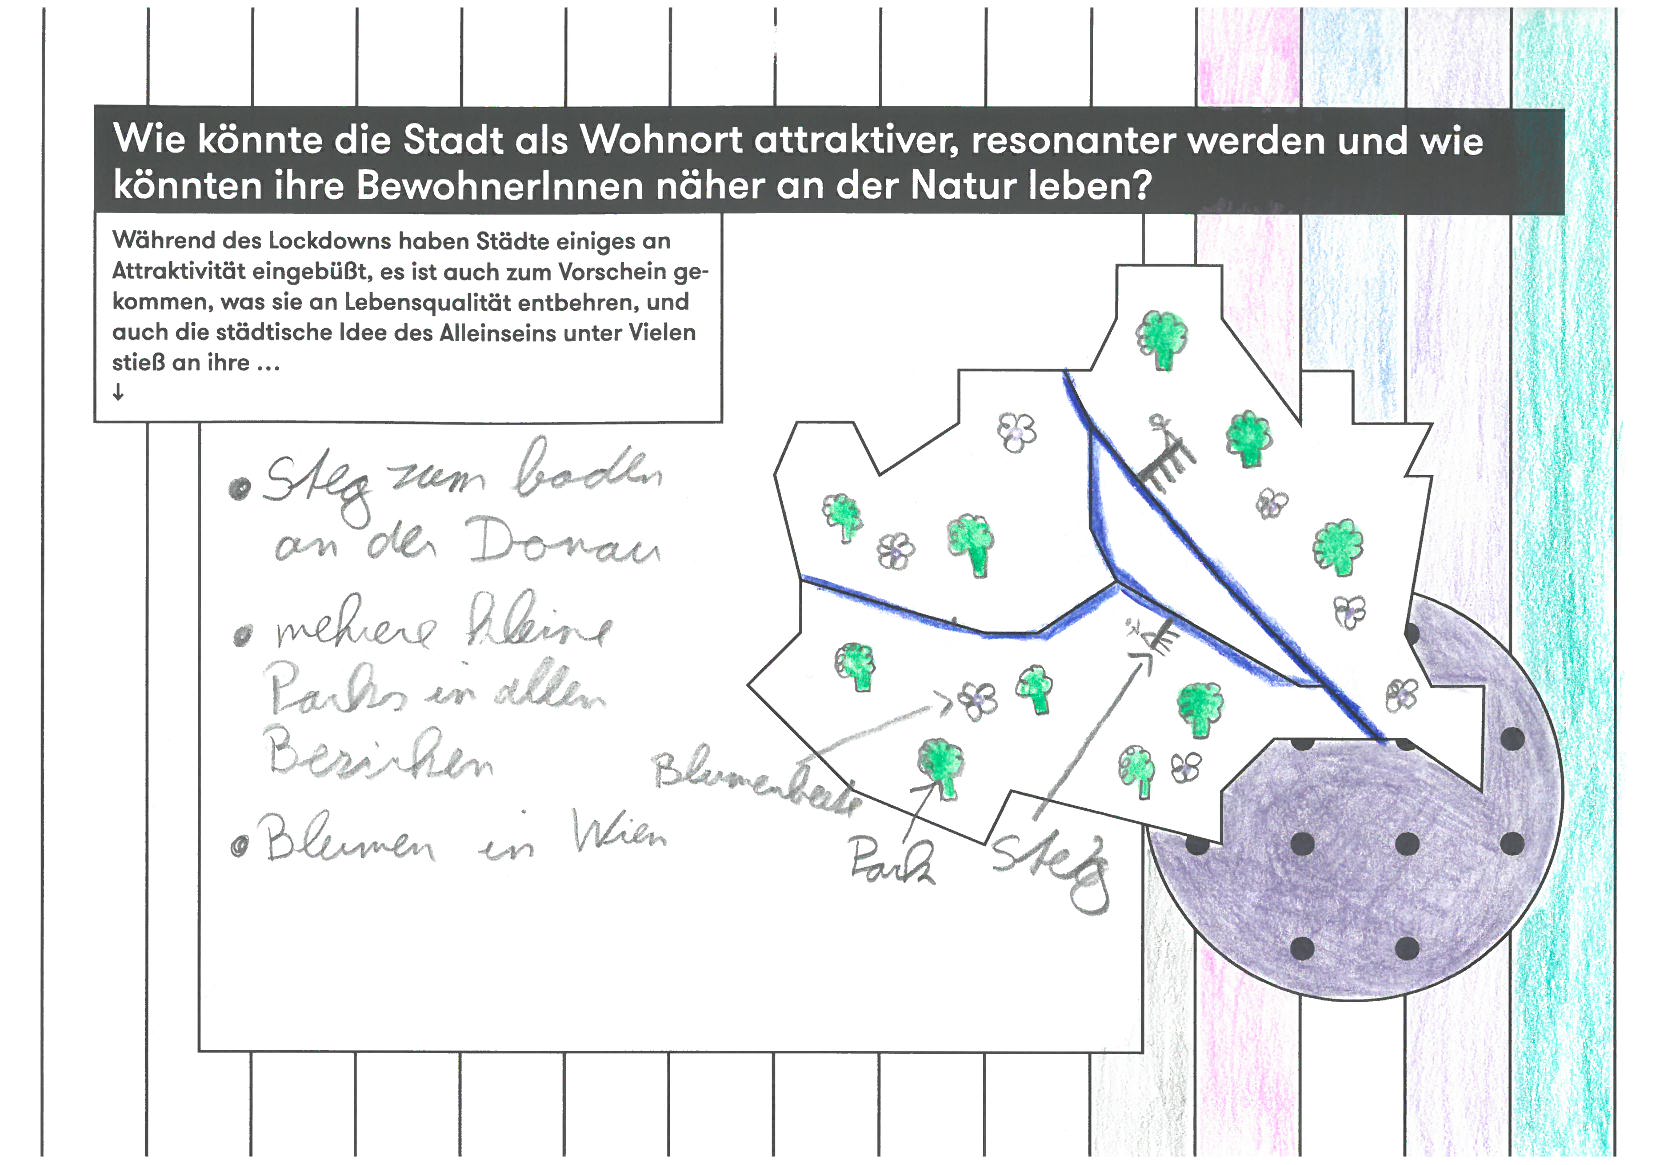 Wie könnte die Stadt als Wohnort attraktiver, resonanter werden und wie
könnten ihre BewohnerInnen näher an der Natur leben?
Während des Lockdowns haben Städte einiges an
Attraktivität eingebüßt, es ist auch zum Vorschein ge-
kommen, was sie an Lebensqualität entbehren, und
auch die städtische Idee des Alleinseins unter Vielen
stieß an ihre ...
↓
• Steg zum baden
an der Donau
• mehrere kleine
Parks in allen
Bezirken
• Blumen in Wien
Blumenbeete
Park
Steg